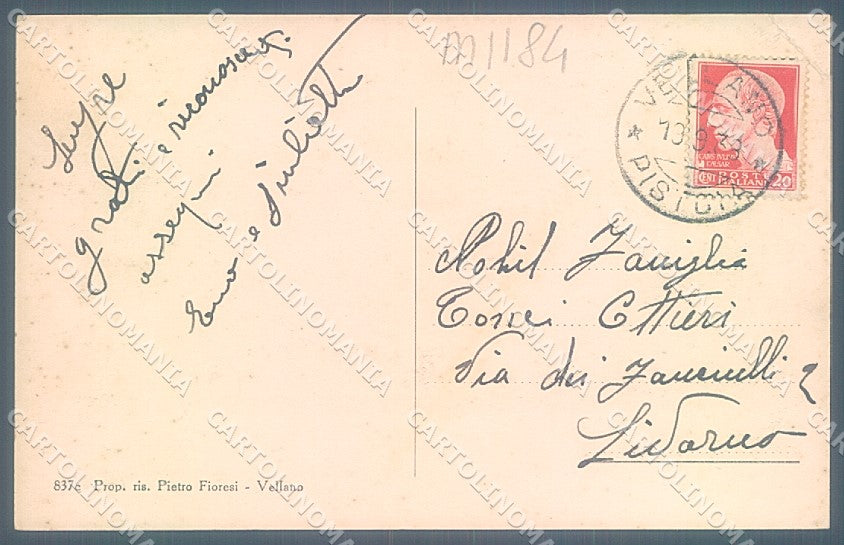 m1184
Sempre
grati e riconoscenti
ossequi
e Giulietta
8376 Prop. ris. Pietro Fioresi - Vellano
VELLANO
13.9.33
PISTOIA
CAIVS IVLIVS
CAESAR
CENT POSTE ITALIANE 20
Nobil Famiglia
Ottieri
Via dei Fanciulli 2
Livorno
CARTOLINOMANIA